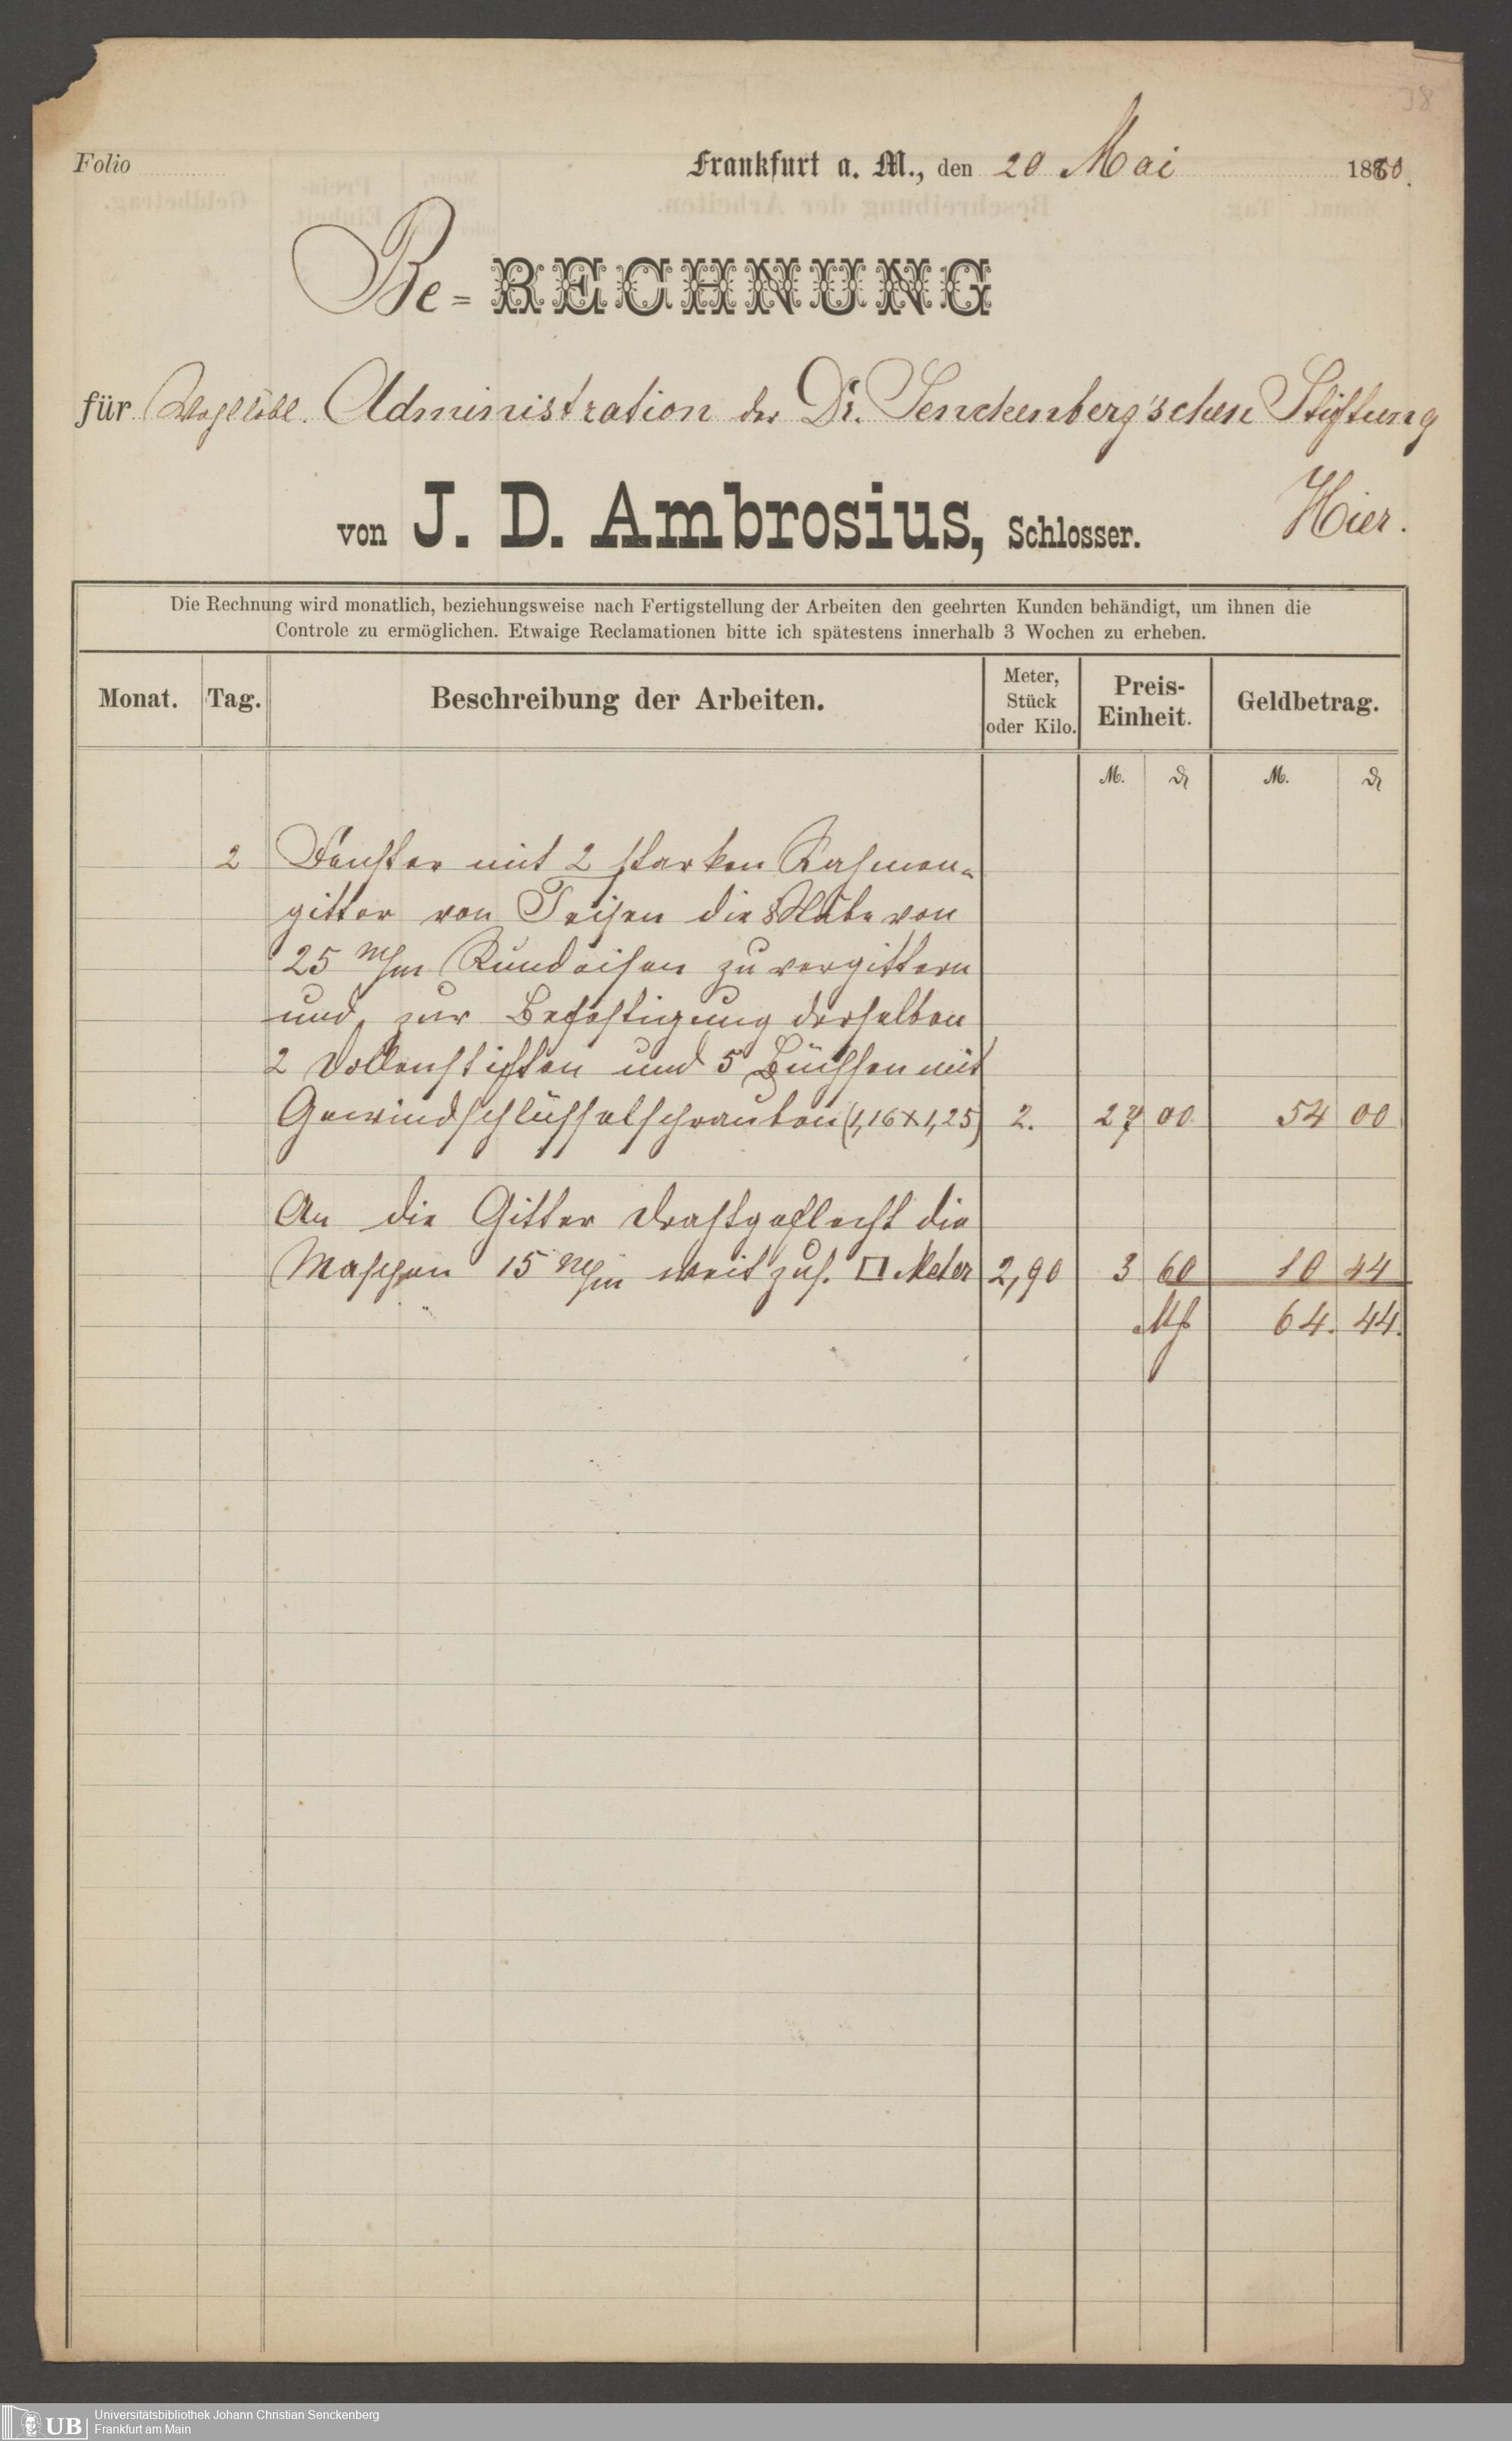 38
Folio
Frankfurt a. M., den 20 Mai 1880.
Be- RECHNUNG
für Wohllöbl. Administration der Dr. Senckenberg'schen Stiftung
Hier.
von J. D. Ambrosius, Schlosser.
Die Rechnung wird monatlich, beziehungsweise nach Fertigstellung der Arbeiten den geehrten Kunden behändigt, um ihnen die
Controle zu ermöglichen. Etwaige Reclamationen bitte ich spätestens innerhalb 3 Wochen zu erheben.
Monat. Tag. Beschreibung der Arbeiten. Meter, Stück oder Kilo. Preis-Einheit. Geldbetrag.
M. ₰ M. ₰
2 Fenster mit 2 starken Rahmen-
gitter von Teisen die Stäbe von
25 m/m Rundeisen zu vergittern
und zur Befestigung derselben
2 Dollenstiften und 5 Büchsen mit
Gewindschlüsselschrauben (1,16 x 1,25) 2. 27 00 54 00
An die Gitter Drahtgeflecht die
Maschen 15 m/m weit zus. □ Meter 2,90 3 60 10 44
Mk 64. 44.
UB Universitätsbibliothek Johann Christian Senckenberg
Frankfurt am Main